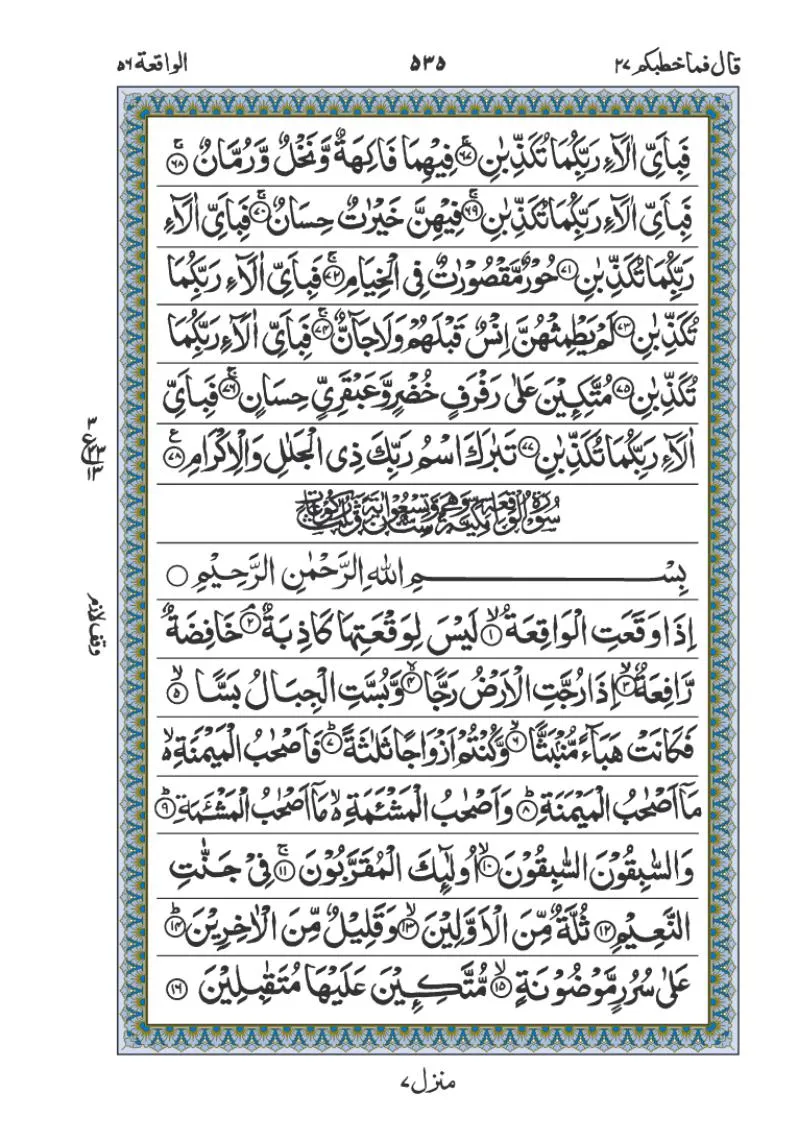 قال فما خطبكم ٢٧
٥٣٥
الواقعة ٥٦
فَبِاَىِّ اٰلَآءِ رَبِّكُمَا تُكَذِّبٰنِ ۚ‏﴿۶۷﴾ فِيْهِمَا فَاكِهَةٌ وَّنَخْلٌ وَّرُمَّانٌ ۚ‏﴿۶۸﴾
فَبِاَىِّ اٰلَآءِ رَبِّكُمَا تُكَذِّبٰنِ ۚ‏﴿۶۹﴾ فِيْهِنَّ خَيْرٰتٌ حِسَانٌ ۚ‏﴿۷۰﴾ فَبِاَىِّ اٰلَآءِ
رَبِّكُمَا تُكَذِّبٰنِ ‏﴿۷۱﴾ حُوْرٌ مَّقْصُوْرٰتٌ فِى الْخِيَامِ ۚ‏﴿۷۲﴾ فَبِاَىِّ اٰلَآءِ رَبِّكُمَا
تُكَذِّبٰنِ ‏﴿۷۳﴾ لَمْ يَطْمِثْهُنَّ اِنْسٌ قَبْلَهُمْ وَلَا جَآنٌّ ۚ‏﴿۷۴﴾ فَبِاَىِّ اٰلَآءِ رَبِّكُمَا
تُكَذِّبٰنِ ‏﴿۷۵﴾ مُتَّكِـِٕيْنَ عَلٰى رَفْرَفٍ خُضْرٍ وَّعَبْقَرِىٍّ حِسَانٍ ۚ‏﴿۷۶﴾ فَبِاَىِّ
اٰلَآءِ رَبِّكُمَا تُكَذِّبٰنِ ‏﴿۷۷﴾ تَبٰرَكَ اسْمُ رَبِّكَ ذِى الْجَلٰلِ وَالْاِكْرَامِ ‏﴿۷۸﴾ ع
٣
ع
١٣
سورة الواقعة مكية وهى ست وتسعون اية وثلث ركوعات
بِسْمِ اللّٰهِ الرَّحْمٰنِ الرَّحِيْمِ ○
اِذَا وَقَعَتِ الْوَاقِعَةُ ۙ‏﴿۱﴾ لَيْسَ لِوَقْعَتِهَا كَاذِبَةٌ ۘ‏﴿۲﴾ خَافِضَةٌ
وقف لازم
رَّافِعَةٌ ۙ‏﴿۳﴾ اِذَا رُجَّتِ الْاَرْضُ رَجًّا ۙ‏﴿۴﴾ وَّبُسَّتِ الْجِبَالُ بَسًّا ۙ‏﴿۵﴾
فَكَانَتْ هَبَآءً مُّنْۢبَثًّا ۙ‏﴿۶﴾ وَّكُنْتُمْ اَزْوَاجًا ثَلٰثَةً ؕ‏﴿۷﴾ فَاَصْحٰبُ الْمَيْمَنَةِ ۙ
مَاۤ اَصْحٰبُ الْمَيْمَنَةِ ؕ‏﴿۸﴾ وَاَصْحٰبُ الْمَشْـَٔمَةِ ۙ مَاۤ اَصْحٰبُ الْمَشْـَٔمَةِ ؕ‏﴿۹﴾
وَالسّٰبِقُوْنَ السّٰبِقُوْنَ ۙ‏﴿۱۰﴾ اُولٰٓئِكَ الْمُقَرَّبُوْنَ ۚ‏﴿۱۱﴾ فِىْ جَنّٰتِ
النَّعِيْمِ ‏﴿۱۲﴾ ثُلَّةٌ مِّنَ الْاَوَّلِيْنَ ۙ‏﴿۱۳﴾ وَقَلِيْلٌ مِّنَ الْاٰخِرِيْنَ ؕ‏﴿۱۴﴾
عَلٰى سُرُرٍ مَّوْضُوْنَةٍ ۙ‏﴿۱۵﴾ مُّتَّكِـِٕيْنَ عَلَيْهَا مُتَقٰبِلِيْنَ ‏﴿۱۶﴾
منزل ٧